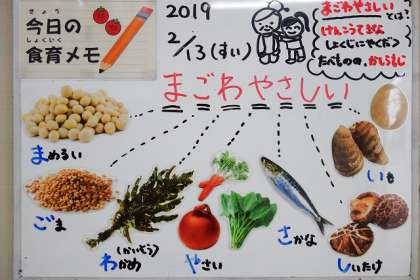 きょう
今日の
しょくいく
食育メモ
2019
2/13(すい)
まごわやさしい
とは?
けんこうてきな
しょくじにやくだつ
たべものの、かしらもじ
まごわやさしい
まめるい
ごま
(かいそう)
わかめ
やさい
さかな
しいたけ
いも